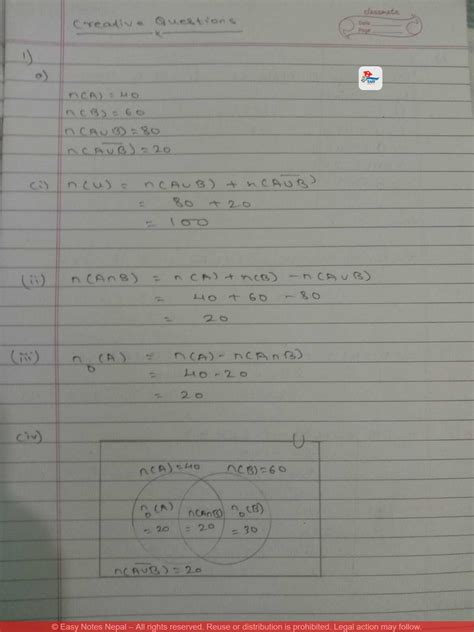 Creative Questions
classmate
Date
Page
1)
a)
n(A) = 40
n(B) = 60
n(A∪B) = 80
n(A∪B)‾ = 20
(i) n(U) = n(A∪B) + n(A∪B)‾
= 80 + 20
= 100
(ii) n(A∩B) = n(A) + n(B) - n(A∪B)
= 40 + 60 - 80
= 20
(iii) n₀(A) = n(A) - n(A∩B)
= 40 - 20
= 20
(iv)
U
n(A) = 40 n(B) = 60
n₀(A) n(A∩B) n₀(B)
= 20 = 20 = 30
n(A∪B)‾ = 20
© Easy Notes Nepal – All rights reserved. Reuse or distribution is prohibited. Legal action may follow.